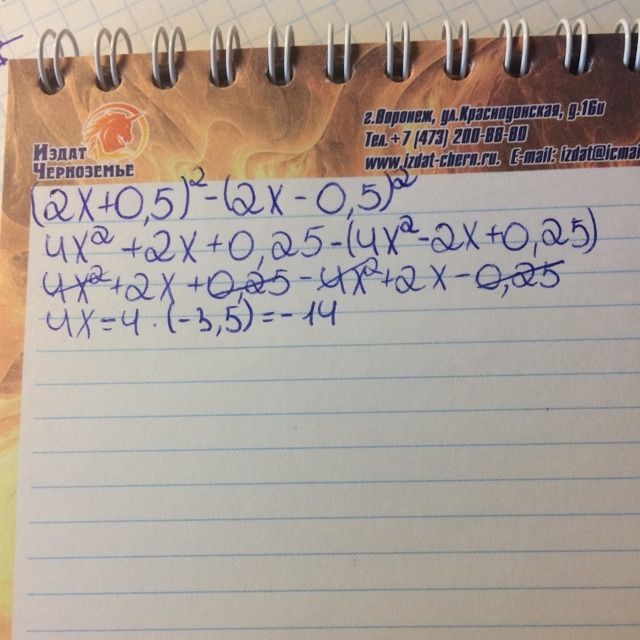 ИЗДАТ
ЧЕРНОЗЕМЬЕ
г.Воронеж, ул.Краснодонская, д.16и
Тел.+7 (473) 200-88-80
www.izdat-chern.ru. E-mail: izdat@icmai
(2x+0,5)²-(2x-0,5)²
4x²+2x+0,25-(4x²-2x+0,25)
4x²+2x+0,25-4x²+2x-0,25
4x=4·(-3,5)=-14